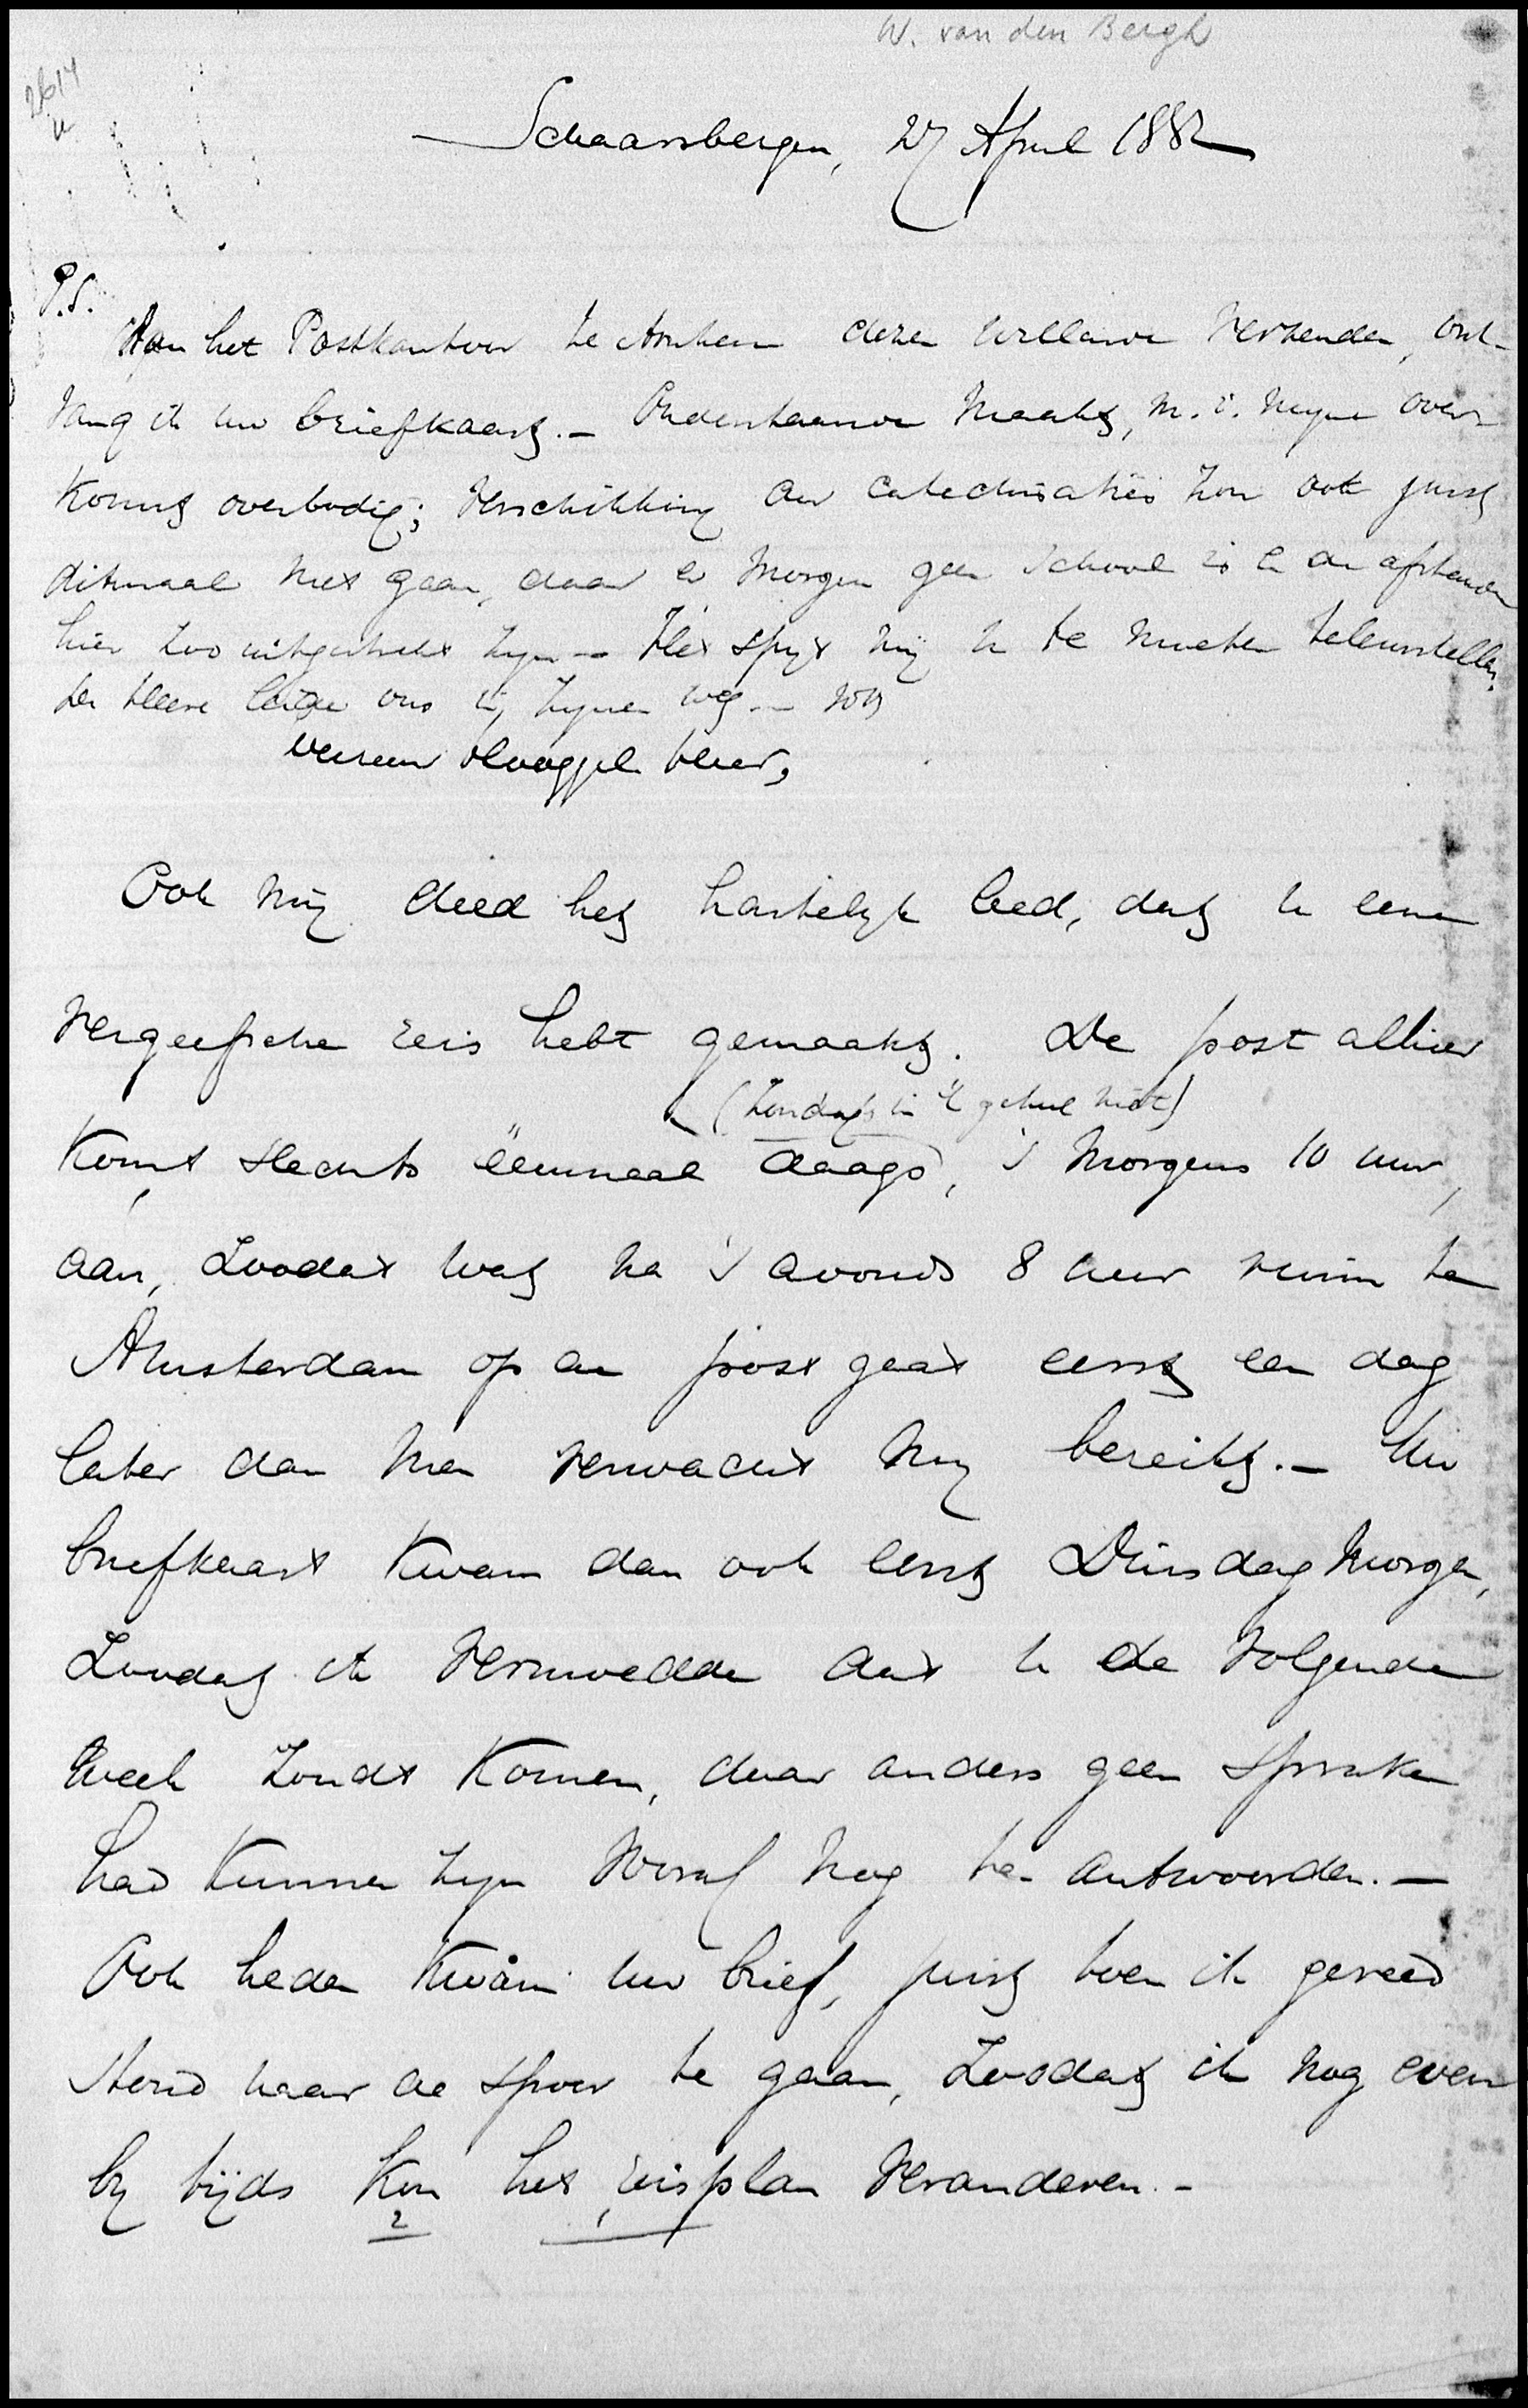 W. van den Bergh
2614
Schaarsbergen, 27 April 1882
P.S.
Aan het Postkantoor te Arnhem dezen willende verzenden, ont-
vang ik uw briefkaart. - Onderstaande maakt, m.i. mijne over-
komst overbodig; verschikking der catechisatiës zou ook juist
ditmaal niet gaan, daar er morgen geen school is en de afstanden
hier zoo uitgestrekt zijn - Het spijt mij U te moeten teleurstellen.
De Heere leide ons in zijnen weg. -
Weleerw Hooggel. Heer,
Ook mij deed het hartelijk leed, dat U eene
vergeefsche reis hebt gemaakt. De post alhier
(Zondags in 't geheel niet)
komt slechts éénmaal daags, 's morgens 10 uur,
aan, zoodat wat na 's avonds 8 uur ruim te
Amsterdam op de post gaat eerst een dag
later dan men verwacht mij bereikt. - Uw
briefkaart kwam dan ook eerst Dinsdag morgen,
zoodat ik vermoedde dat U de volgende
week zoudt komen, daar anders geen sprake
had kunnen zijn vooraf nog te antwoorden. -
Ook heden kwam uw brief, juist toen ik gereed
stond naar de spoor te gaan, zoodat ik nog even
bij tijds kon het reisplan veranderen. -
2 1